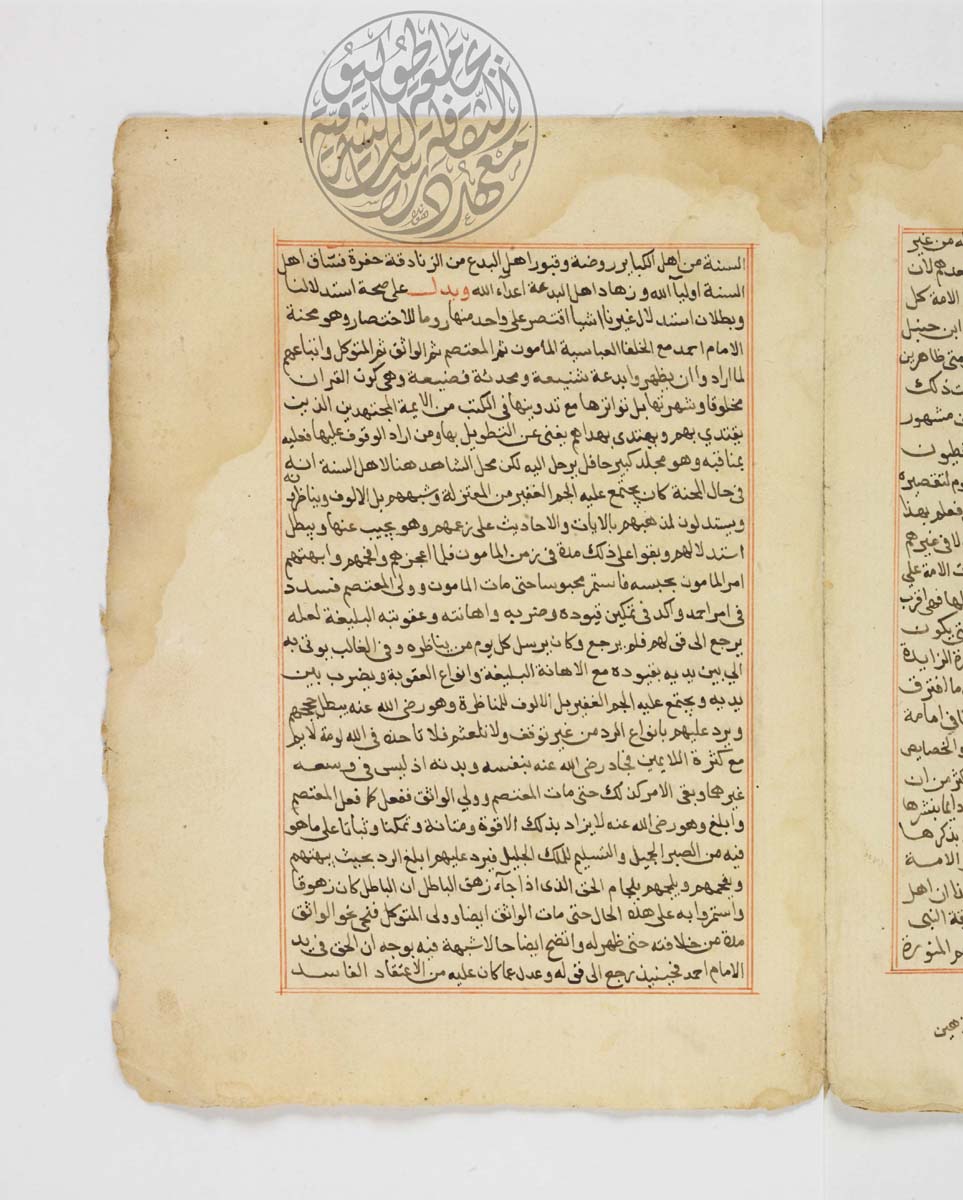 جامعة طوكيو
معهد الدراسات الثقافية الشرقية
السنة من اهل الكباير روضة وقبور اهل البدع من الزنادقة حفرة فساق اهل
السنة اوليآ الله وزهاد اهل البدعة اعدآء الله ويدل على صحة استدلالنا
وبطلان استدلال غيرنا اشيا اقتصر على واحد منها روما للاختصار وهو محنة
الامام احمد مع الخلفا العباسية المامون ثم المعتصم ثم الواثق ثم المتوكل واتباعهم
لما ارادوا ان يظهروا بدعة شنيعة ومحدثة فضيعة وهي كون القران
مخلوقا وشهرتها بل تواترها مع تدوينها في الكتب من الايمة المجتهدين الذين
يقتدي بهم ويهتدى بهداهم يغنى عن التطويل بها ومن اراد الوقوف عليها فعليه
بمناقبه وهو مجلد كبير حافل يرحل اليه لكن محل الشاهد هنا لاهل السنة انه
في حال المحنة كان يجتمع عليه الجم الغفير من المعتزلة وشبههم بل الالوف ويناظرونه
ويستدلون لمذهبهم بالايات والاحاديث على زعمهم وهو يجيب عنها ويبطل
استدلالهم وبقوا على ذلك مدة في زمن المامون فلما اعجزهم وافحمهم وابهتهم
امر المامون بحبسه فاستمر محبوسا حتى مات المامون وولى المعتصم فشدد
في امر احمد واكد في تمكين قيوده وضربه واهانته وعقوبته البليغة لعله
يرجع الى قولهم فلم يرجع وكان يرسل كل يوم من يناظره وفي الغالب يوتى به
الي بين يديه بقيوده مع الاهانة البليغة وانواع العقوبة ويضرب بين
يديه ويجتمع عليه الجم الغفير بل الالوف للمناظرة وهو رضى الله عنه يبطل حججهم
ويرد عليهم بانواع الرد من غير توقف ولا تلعثم فلا تاخذه في الله لومة لايم
مع كثرة اللايمين فجاد رضى الله عنه بنفسه وبدنه اذ ليس في وسعه
غيرهما وبقى الامر كذلك حتى مات المعتصم وولي الواثق ففعل كما فعل المعتصم
وابلغ وهو رضى الله عنه لا يزاد بذلك الا قوة ومتانة وتمكنا وثباتا على ما هو
فيه من الصبر الجميل والتسليم للملك الجليل فيرد عليهم ابلغ الرد بحيث يبهتهم
ويفحمهم ويلجمهم بلجام الحق الذى اذا جآء زهق الباطل ان الباطل كان زهوقا
واستمروا به على هذه الحال حتى مات الواثق ايضا وولى المتوكل فنحى نحو الواثق
مدة من خلافته حتى ظهر له واتضح ايضاحا لا شبهة فيه بوجه ان الحق في يد
الامام احمد فحينيذ رجع الى قوله وعدل عما كان عليه من الاعتقاد الفاسد
ه من غير
الامة كل
ابن حنبل
متى ظاهرين
ت ذلك
ن مشهور
وم لتقصيره
فعلم بهذا
لا في غيرهم
ت الامة علي
لها فهى اقرب
تى يكون
رة الزايدة
ما افترق
تا في امامة
والخصايص
كثر من ان
دايما بنشرها
بذكرها
ر الامة
ذا ان اهل
قة النبى
م المنورة